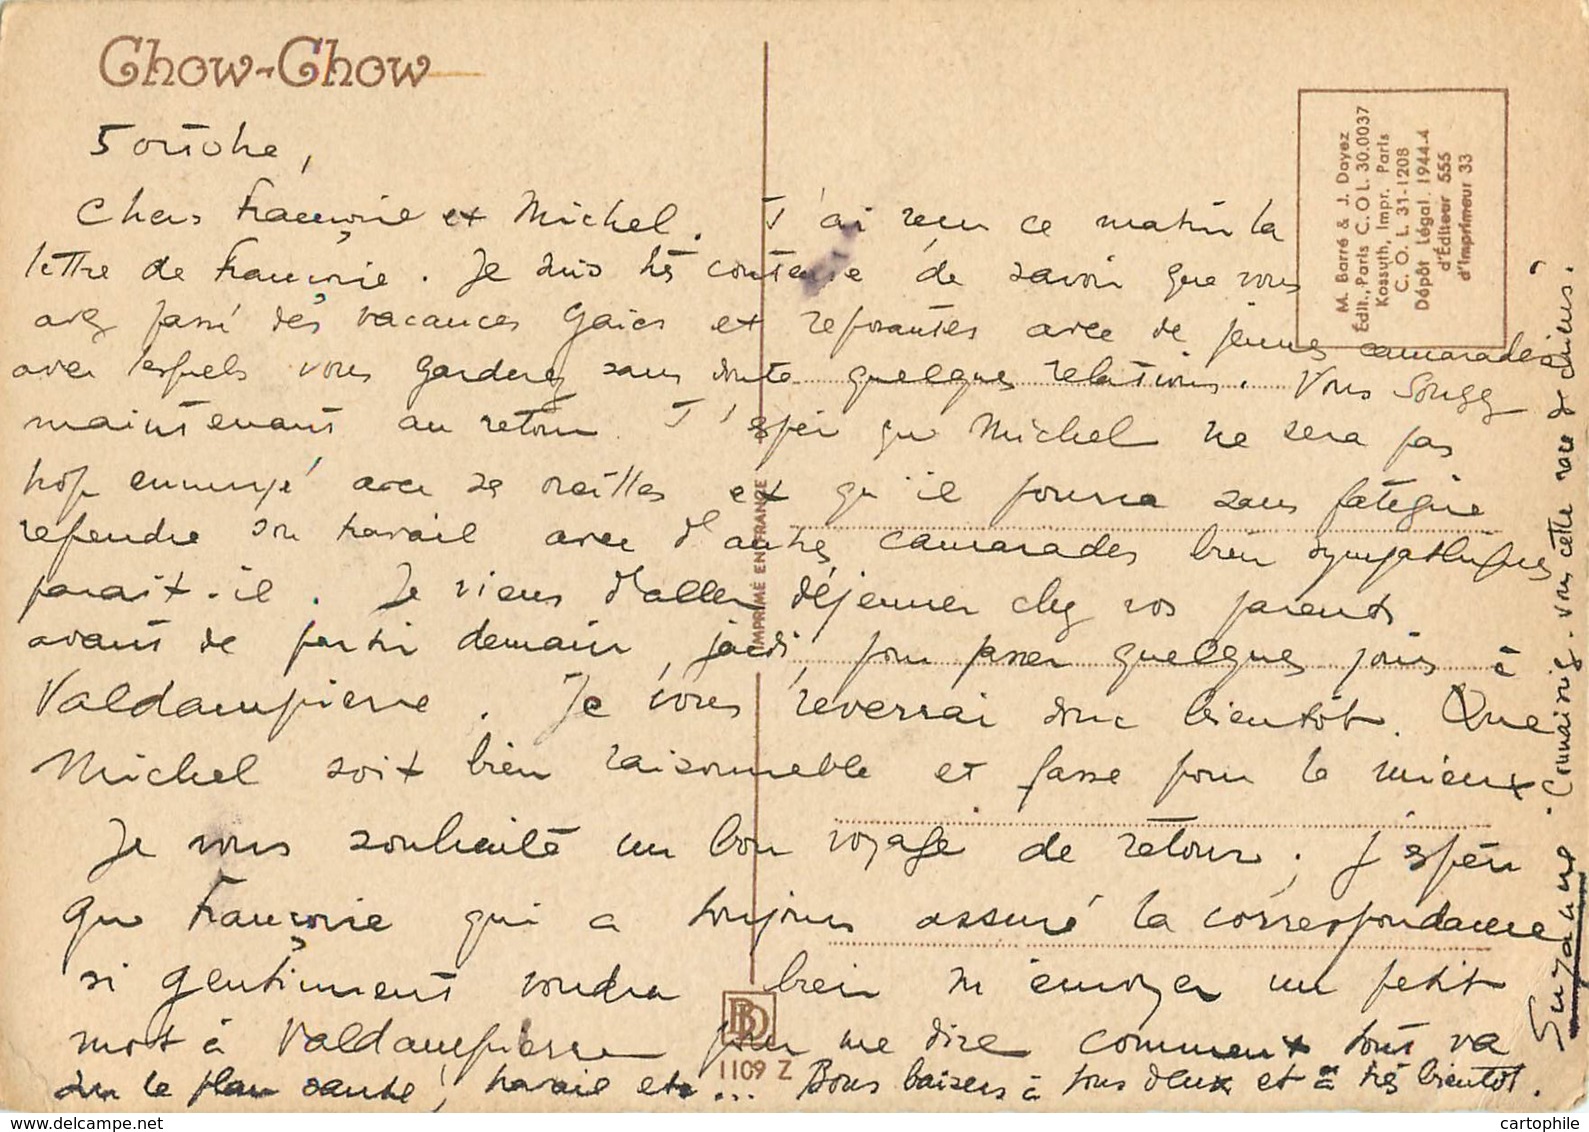 Chow-Chow
5 octobre,
Chers Françoise et Michel. J'ai reçu ce matin la
lettre de Françoise. Je suis très contente de savoir que vous
avez passé des vacances gaies et reposantes avec de jeunes camarades
avec lesquels vous garderez sans doute quelques relations. Vous songez
maintenant au retour. J'espère que Michel ne sera pas
trop ennuyé avec se oreilles et qu'il pourra sans fatigue
reprendre son travail avec d'autres camarades bien sympathiques
parait-il. Je viens d'aller déjeuner chez vos parents
avant de partir demain, jeudi, pour passer quelques jours à
Valdampierre. Je vous reverrai donc bientôt. Que
Michel soit bien raisonnable et fasse pour le mieux
Je vous souhaite un bon voyage de retour ; j'espère
que Françoise qui a toujours assuré la correspondance
si gentiment voudra bien m'envoyer un petit
mot à Valdampierre pour me dire comment tout va
sur le plan santé, travail etc... Bons baisers à tous deux et à très bientôt.
Suzanne. Connaissiez-vous cette race de chiens.
M. Barré & J. Dayez
Édit., Paris C. O. L. 30.0037
Kossuth, Impr. Paris
C. O. L. 31-1208
Dépôt légal. 1944-4
d'Éditeur 555
d'Imprimeur 33
IMPRIMÉ EN FRANCE
BD
1109 Z
cartophile